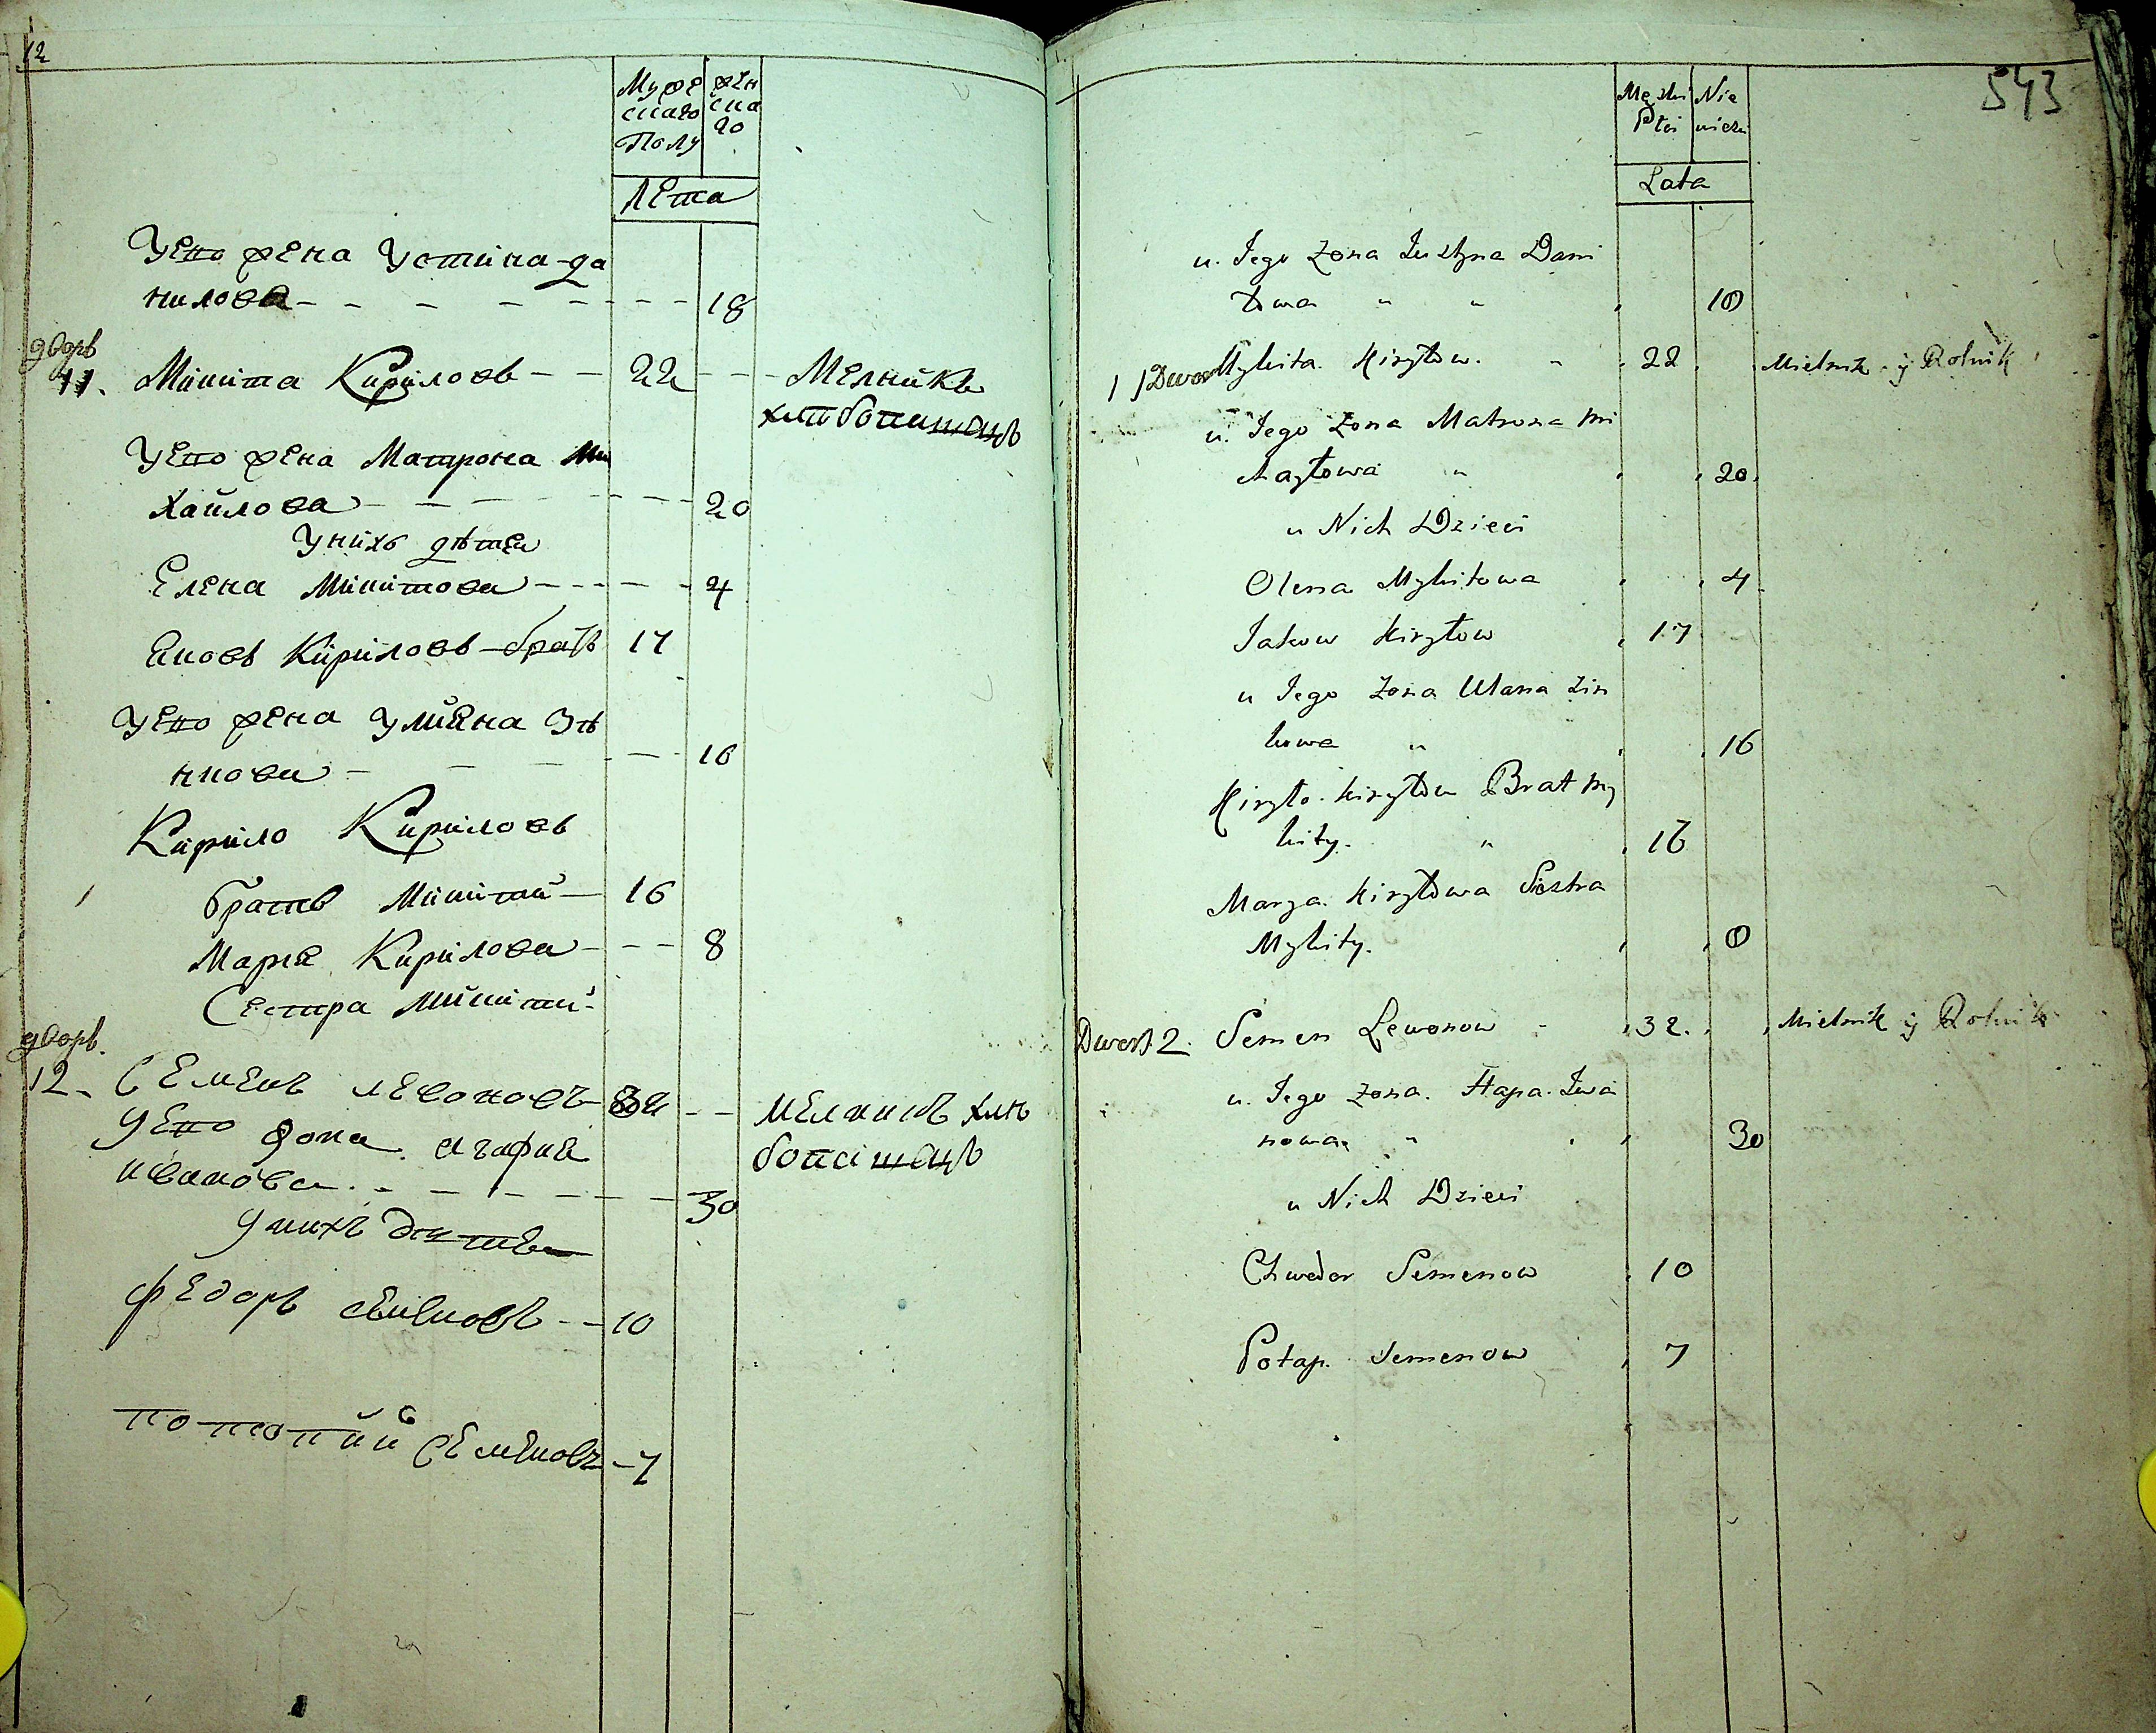 12
Муже
скаго
Полу
жен
ска
го
Лета
Уего жена Устина да
нилова 18
дворъ
11. Микита Кириловъ 22 Мелникъ
хлѣбопашецъ
Уего жена Матрона Ми
хайлова 20
Унихъ дѣтеи
Елена Микитова 4
Яковъ Кириловъ братъ 17
Уего жена Улияна Зѣ
нкова 16
Кирило Кириловъ
братъ Микити 16
Мария Кирилова 8
Сестра Микити
дворъ.
12. Семенъ левоновъ 32 мелникъ хлѣ
бопашецъ
Уего жона агафия
иванова 30
Унихъ дѣтеи
федоръ семеновъ 10
потопий Семеновъ 7
543
Męzki
Płci
Nie
wiezki
Lata
u. Jego Zona Justyna Dani
łowa " " 18
11 Dwor Mykita Kiryłow. " 22 Mielnik y Rolnik
u. Jego Zona Matrona Mi
chayłowa " 20
u Nich Dzieci
Olena Mykitowa 4
Jakow Kiryłow 17
u Jego Zona Ulana Zin
kowa " 16
Kiryło Kiryłow Brat My
kity. " 16
Marya Kiryłowa Siostra
Mykity. 8
Dwor 12. Semen Lewonow 32. Mielnik y Rolnik
u. Jego Zona. Hapa. Iwa
nowa " 30
u Nich Dzieci
Chwedor Semenow 10
Potap. Semenow 7